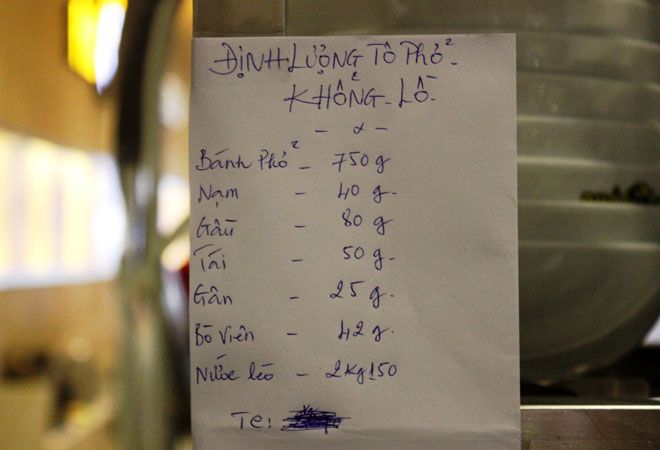 ĐỊNH LƯỢNG TÔ PHỞ
KHỔNG LỒ
Bánh Phở - 750 g
Nạm - 40 g.
Gầu - 80 g
Tái - 50 g.
Gân - 25 g.
Bò Viên - 42 g.
Nước lèo - 2 Kg 150
TC: